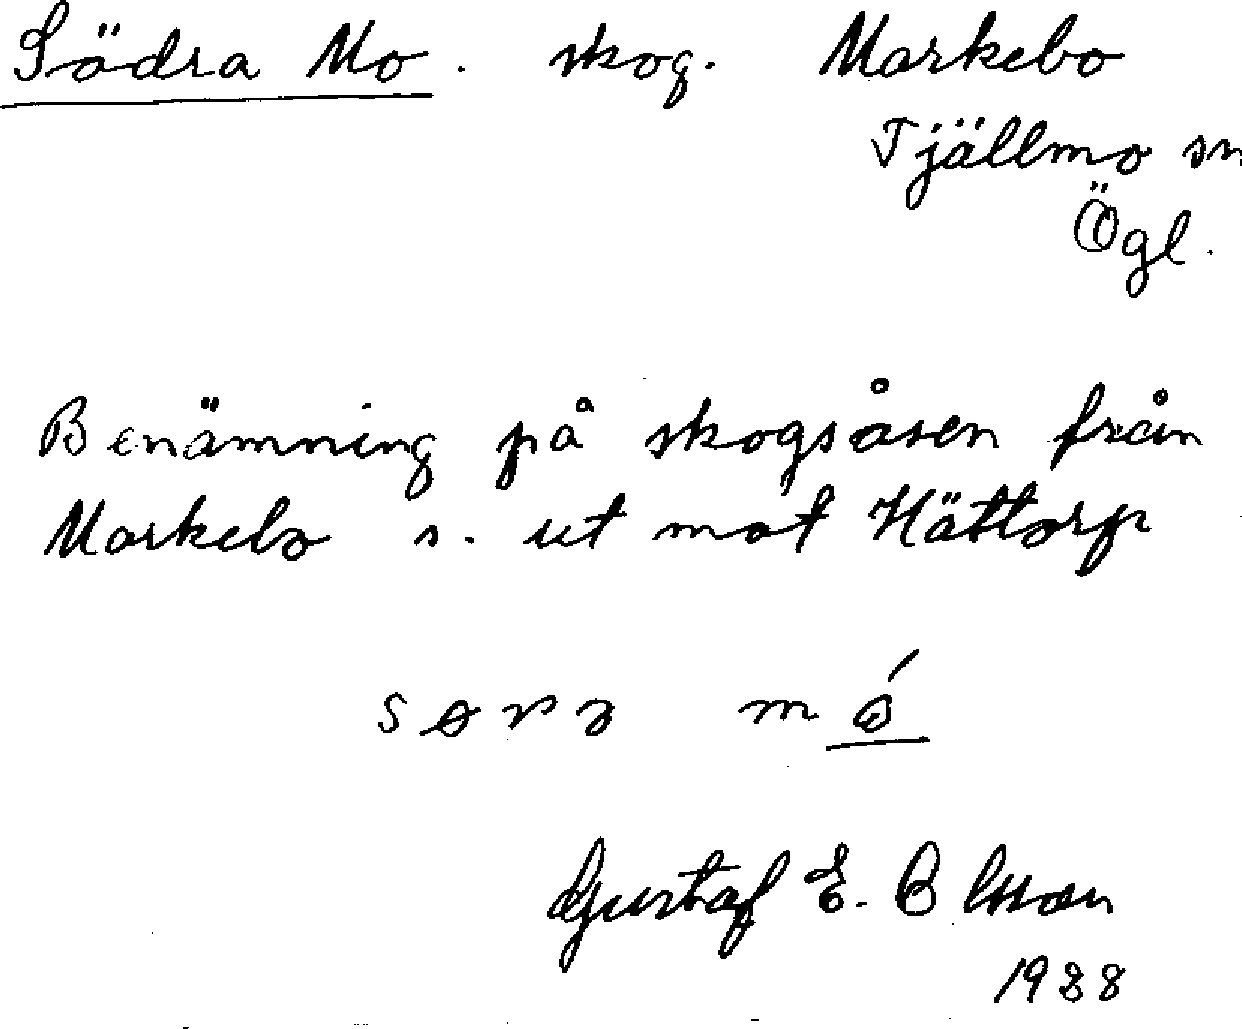 Södra Mo. skog. Markebo
Tjällmo sn
Ögl.
Benämning på skogsåsen från
Markebo s. ut mot Hättorp
sørə mó
Gustaf E. Olsson
1988